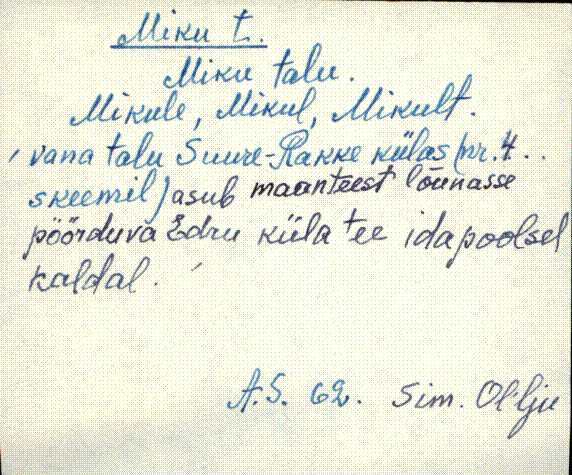 Miku t.
Miku talu.
Mikule, Mikul, Mikult.
' vana talu Suure-Rakke külas (nr. 4..
skeemil) asub maanteest lõunasse
pöörduva Edru küla tee idapoolsel
kaldal. '
A.S. 62. Sim. Ol'lju